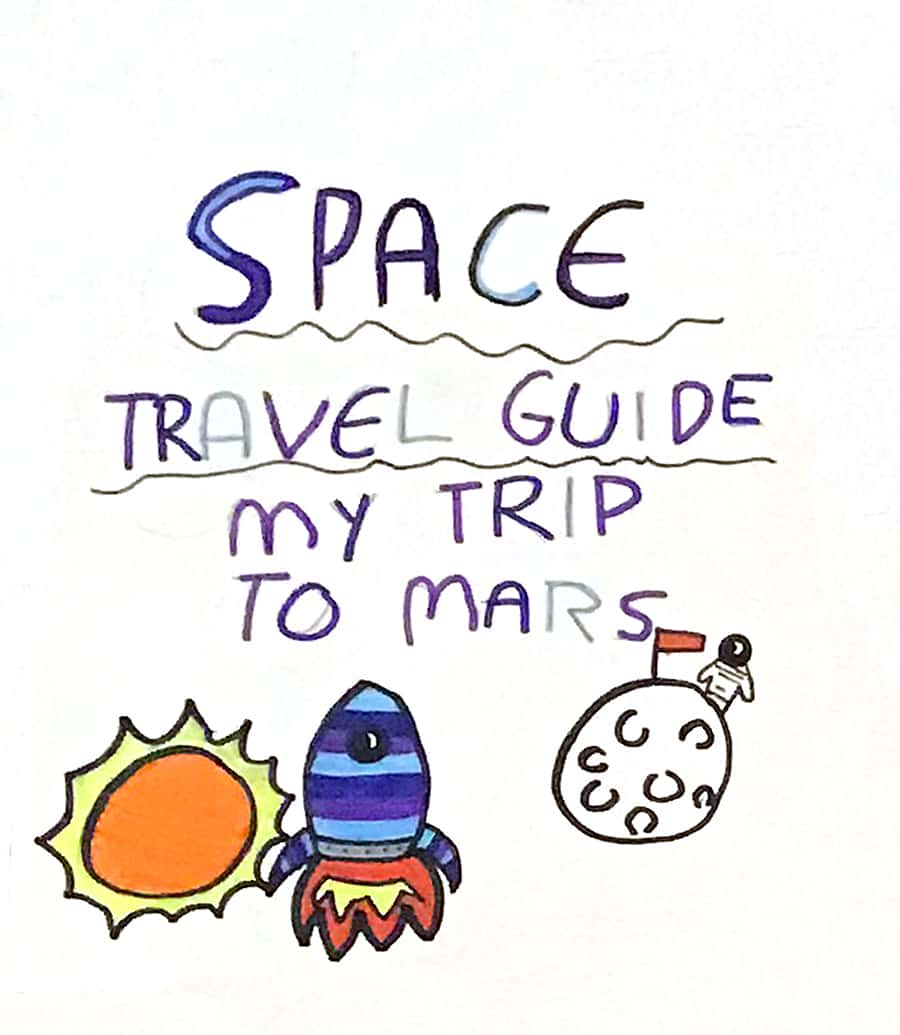 SPACE
TRAVEL GUIDE
MY TRIP
TO MARS